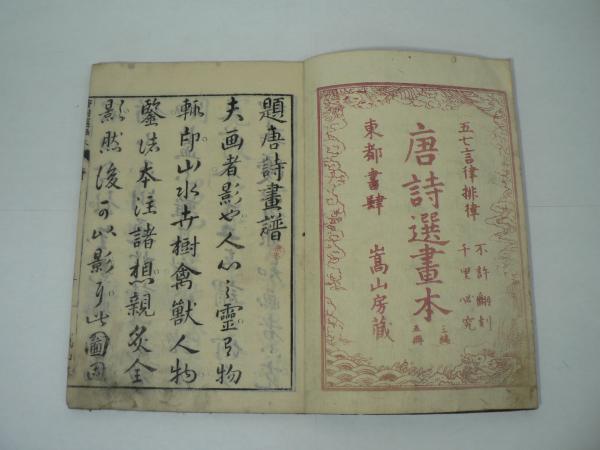 五七言律排律
不許翻刻
千里必究
唐詩選畫本
三編
五冊
東都書肆
嵩山房藏
題唐詩畫譜
夫画者影也人心之靈引物
輙印山水卉樹禽獸人物
鑒法本注諸想親炙全
影然後可以影